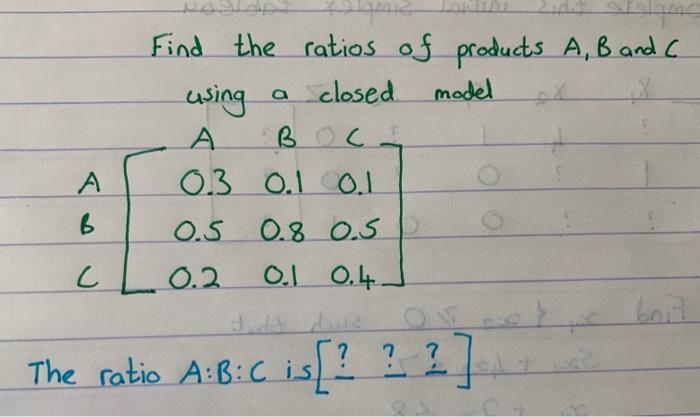 Find the ratios of products A, B and C
using a closed model
A B C
A 0.3 0.1 0.1
B 0.5 0.8 0.5
C 0.2 0.1 0.4
The ratio A:B:C is [? ? ?]